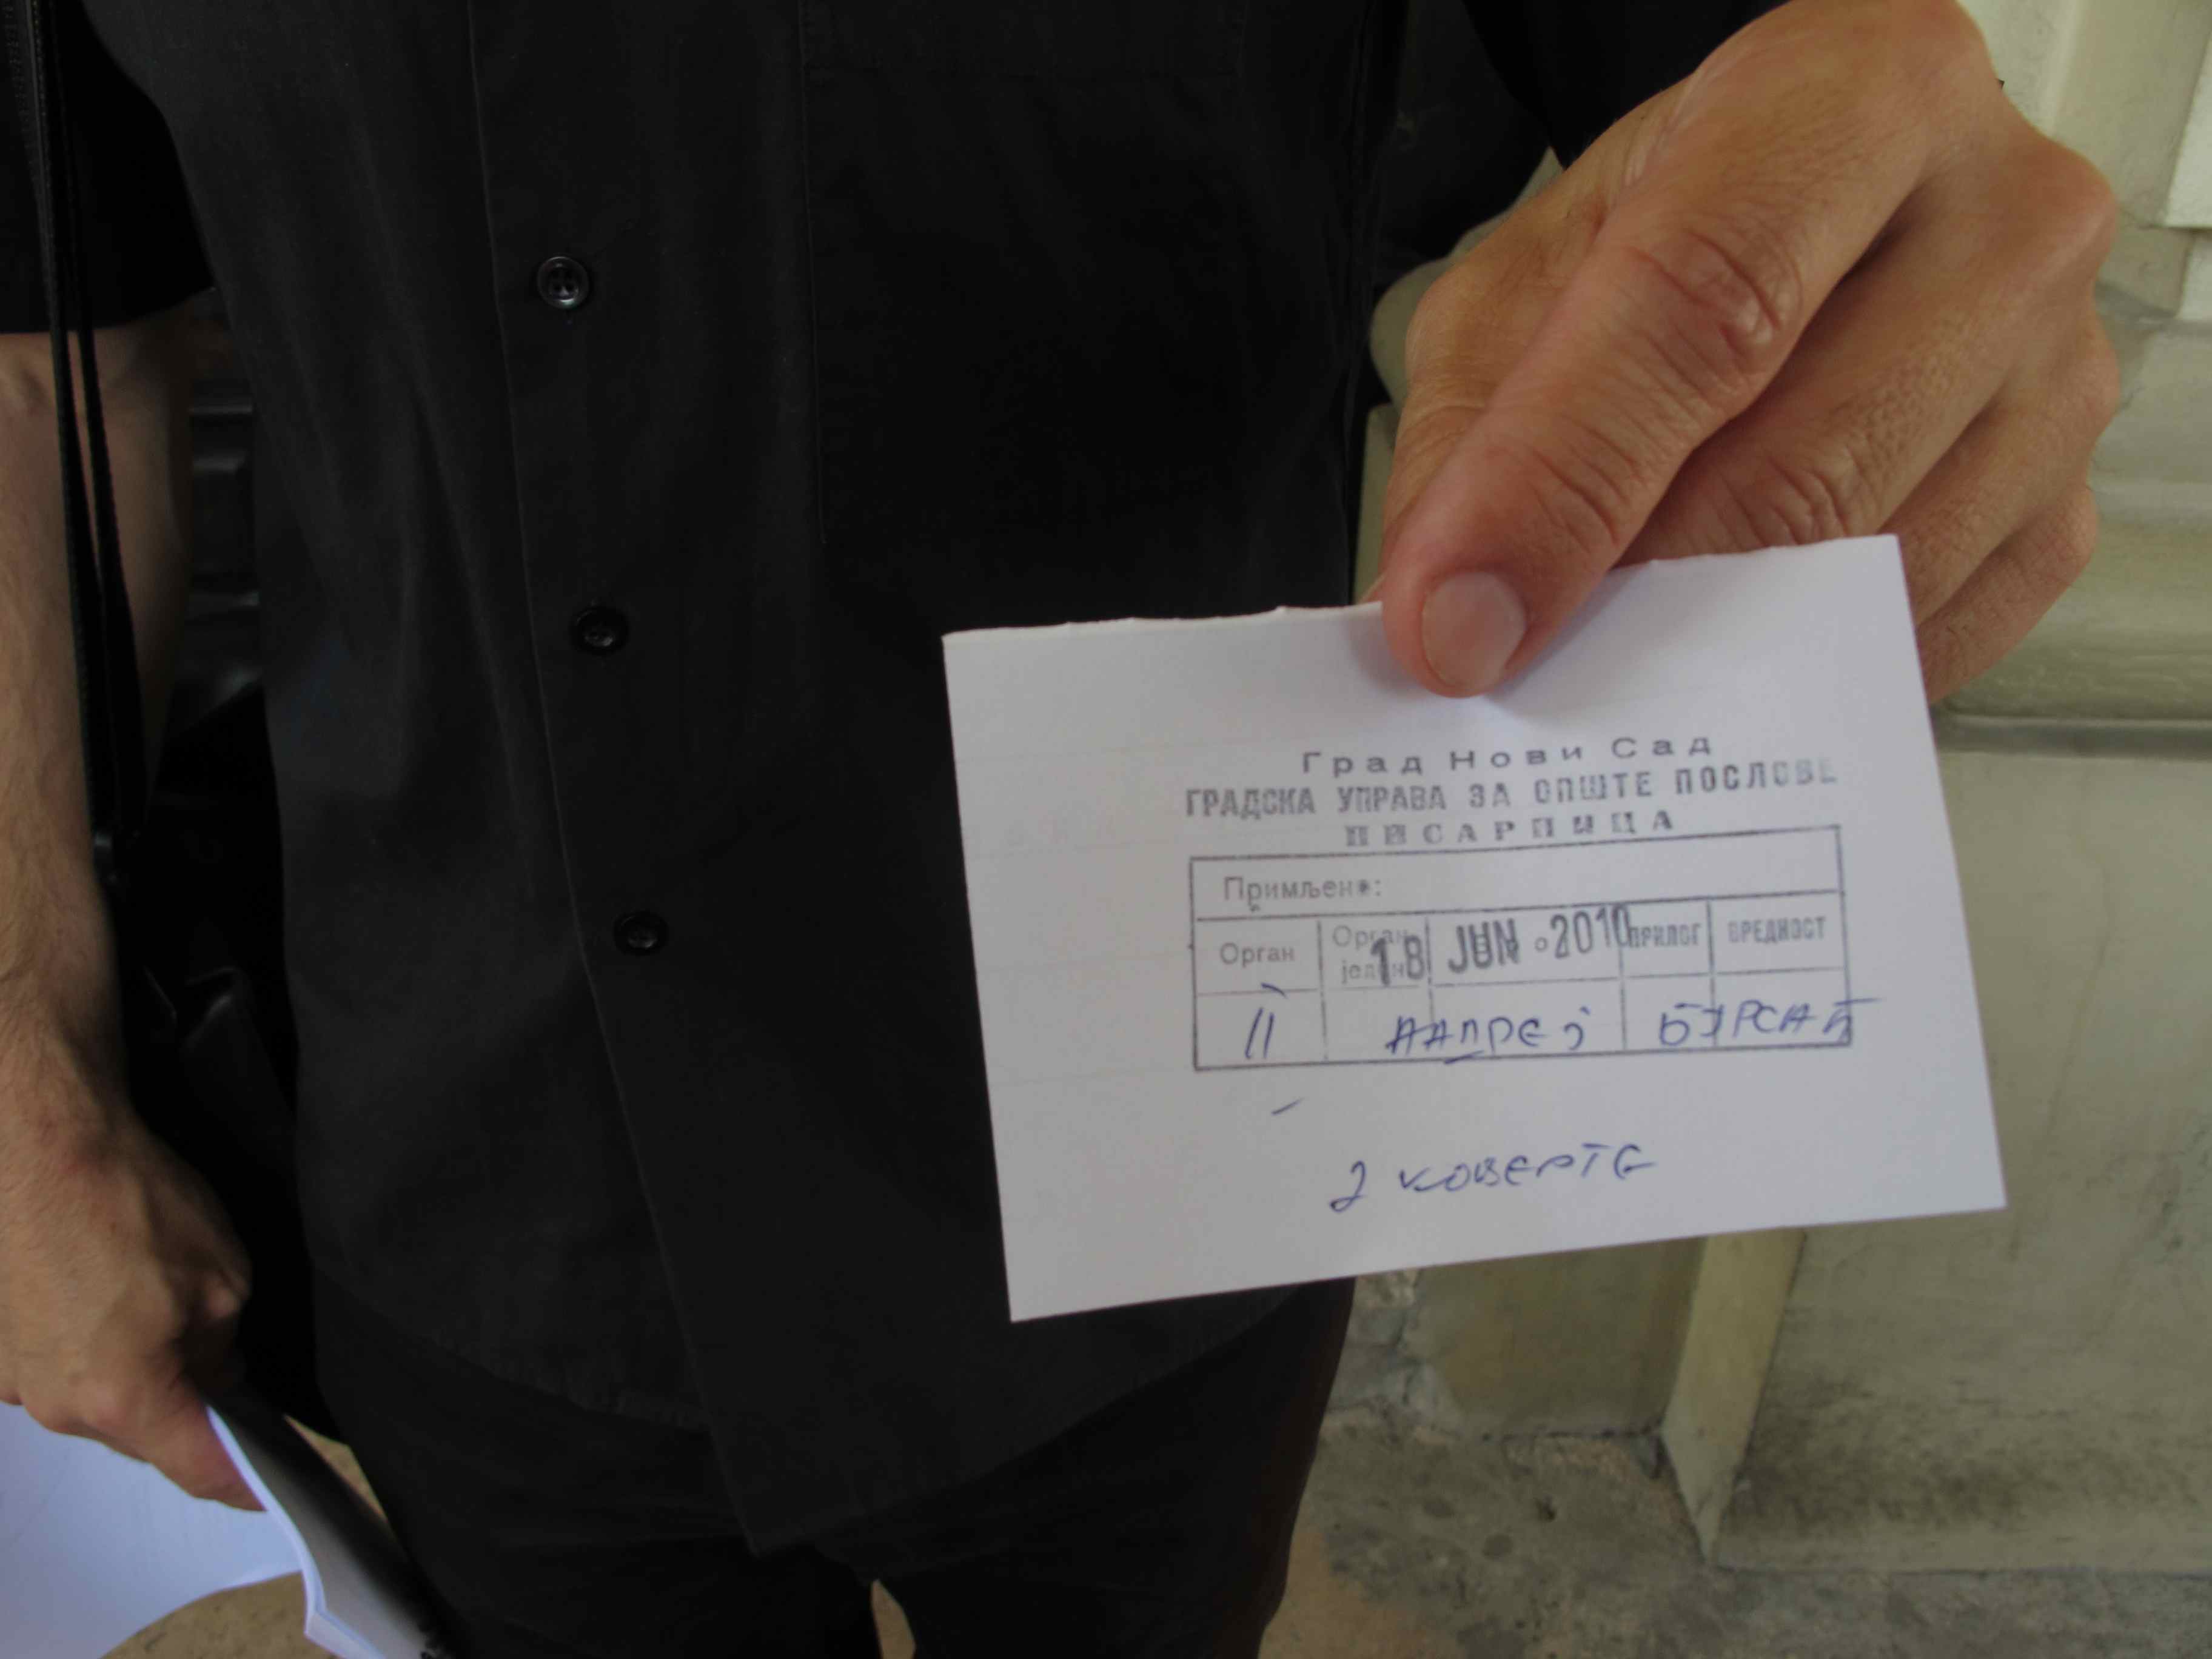 Град Нови Сад
ГРАДСКА УПРАВА ЗА ОПШТЕ ПОСЛОВЕ
ПИСАРНИЦА
Примљено:
Орган Орган. јед 18 JUN 2010 ПРИЛОГ ВРЕДНОСТ
11 АНДРЕЈ БУРСАЋ
2 КОВЕРТЕ